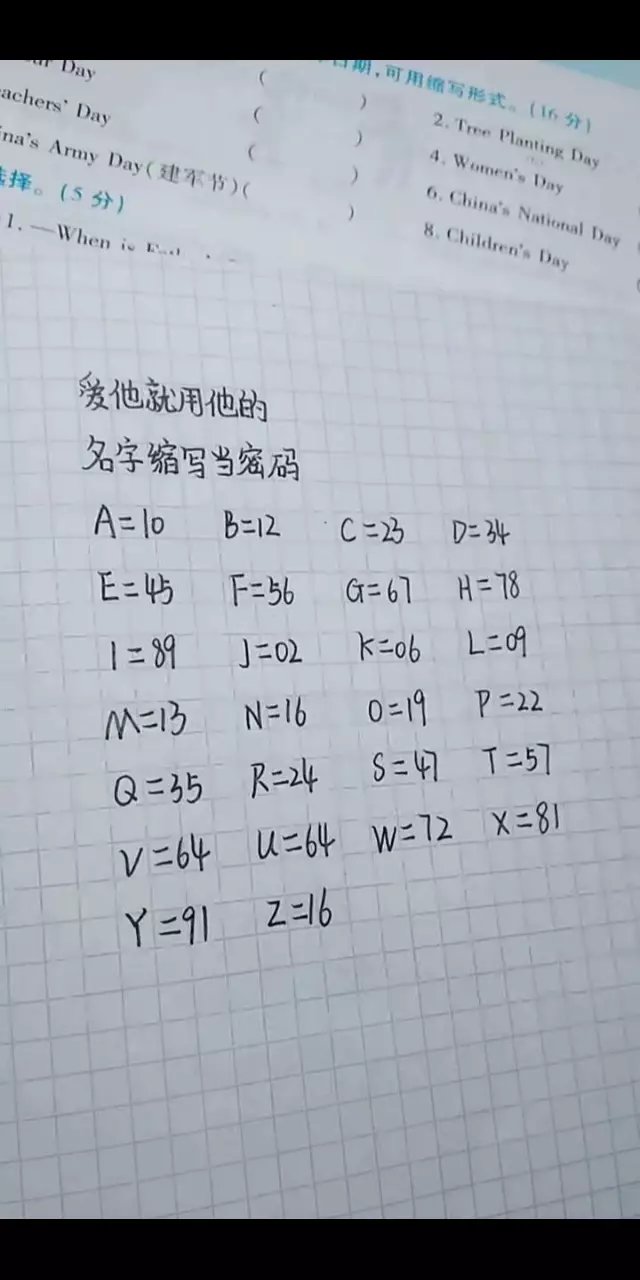 日期,可用缩写形式。(16 分)
Day
( )
2. Tree Planting Day
achers' Day
( )
4. Women's Day
na's Army Day(建军节)( )
6. China's National Day
8. Children's Day
择。(5 分)
1. —When is
爱他就用他的
名字缩写当密码
A=10 B=12 C=23 D=34
E=45 F=56 G=67 H=78
I=89 J=02 K=06 L=09
M=13 N=16 O=19 P=22
Q=35 R=24 S=47 T=57
V=64 U=64 W=72 X=81
Y=91 Z=16